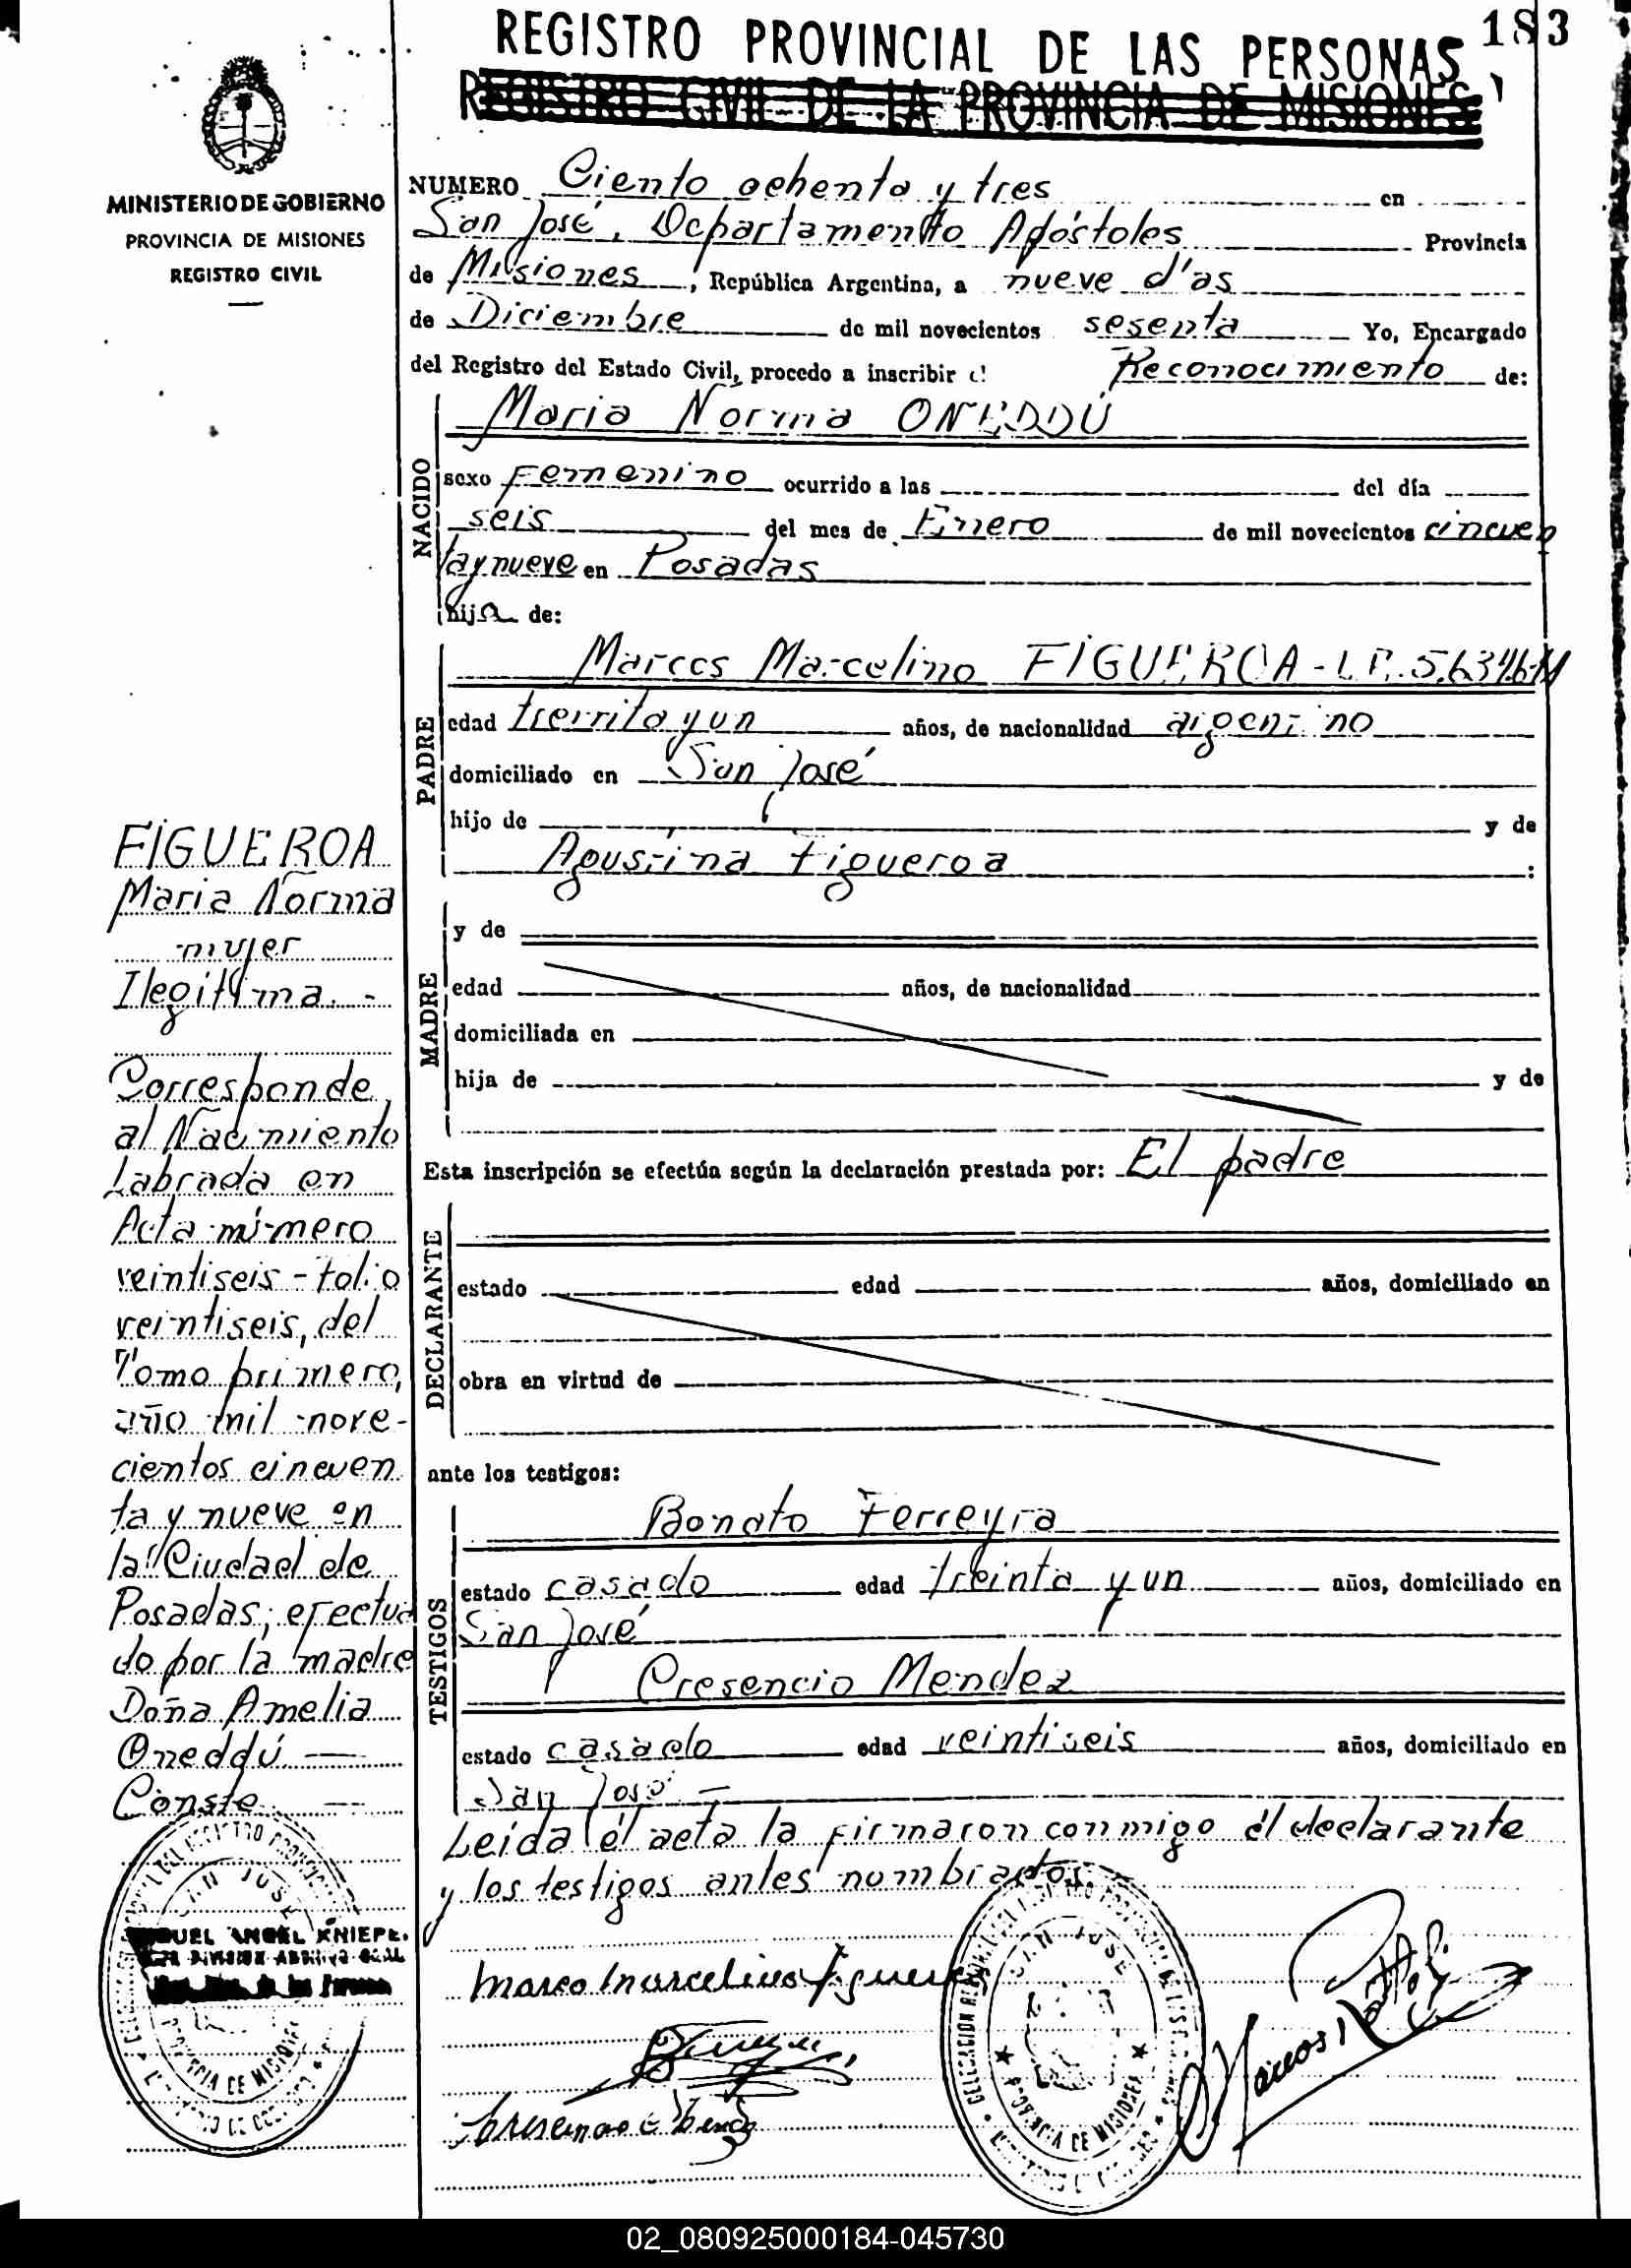 183
REGISTRO PROVINCIAL DE LAS PERSONAS
REGISTRO CIVIL DE LA PROVINCIA DE MISIONES
MINISTERIO DE GOBIERNO
PROVINCIA DE MISIONES
REGISTRO CIVIL
NUMERO Ciento ochenta y tres en
San José, Departamento Apóstoles Provincia
de Misiones, República Argentina, a nueve días
de Diciembre de mil novecientos sesenta Yo, Encargado
del Registro del Estado Civil, procedo a inscribir el Reconocimiento de:
NACIDO
Maria Norma ONEDDÚ
sexo Femenino ocurrido a las del día
seis del mes de Enero de mil novecientos cincuen
ta y nueve en Posadas
hija de:
PADRE
Marcos Marcelino FIGUEROA
edad treinta y un años, de nacionalidad argentino
domiciliado en San José
hijo de y de
Agustina Figueroa :
MADRE
y de
edad años, de nacionalidad
domiciliada en
hija de y de
Esta inscripción se efectúa según la declaración prestada por: El padre
DECLARANTE
estado edad años, domiciliado en
obra en virtud de
ante los testigos:
TESTIGOS
Bonato Ferreyra
estado casado edad treinta y un años, domiciliado en
San José
Cresencio Mendez
estado casado edad veintiseis años, domiciliado en
San José -
Leida el acta la firmaron conmigo el declarante
y los testigos antes nombrados.
Marco Marcelino Figueroa
FIGUEROA
Maria Norma
mujer
Ilegitima. -
Corresponde
al Nacimiento
Labrada en
Acta número
veintiseis - folio
veintiseis, del
Tomo primero,
año mil nove-
cientos cincuen
ta y nueve en
la Ciudad de
Posadas; efectua
do por la madre
Doña Amelia
Oneddú. —
Conste. —
SAN JOSE
PROVINCIA DE MISIONES
SAN JOSE
PROVINCIA DE MISIONES
02_080925000184-045730